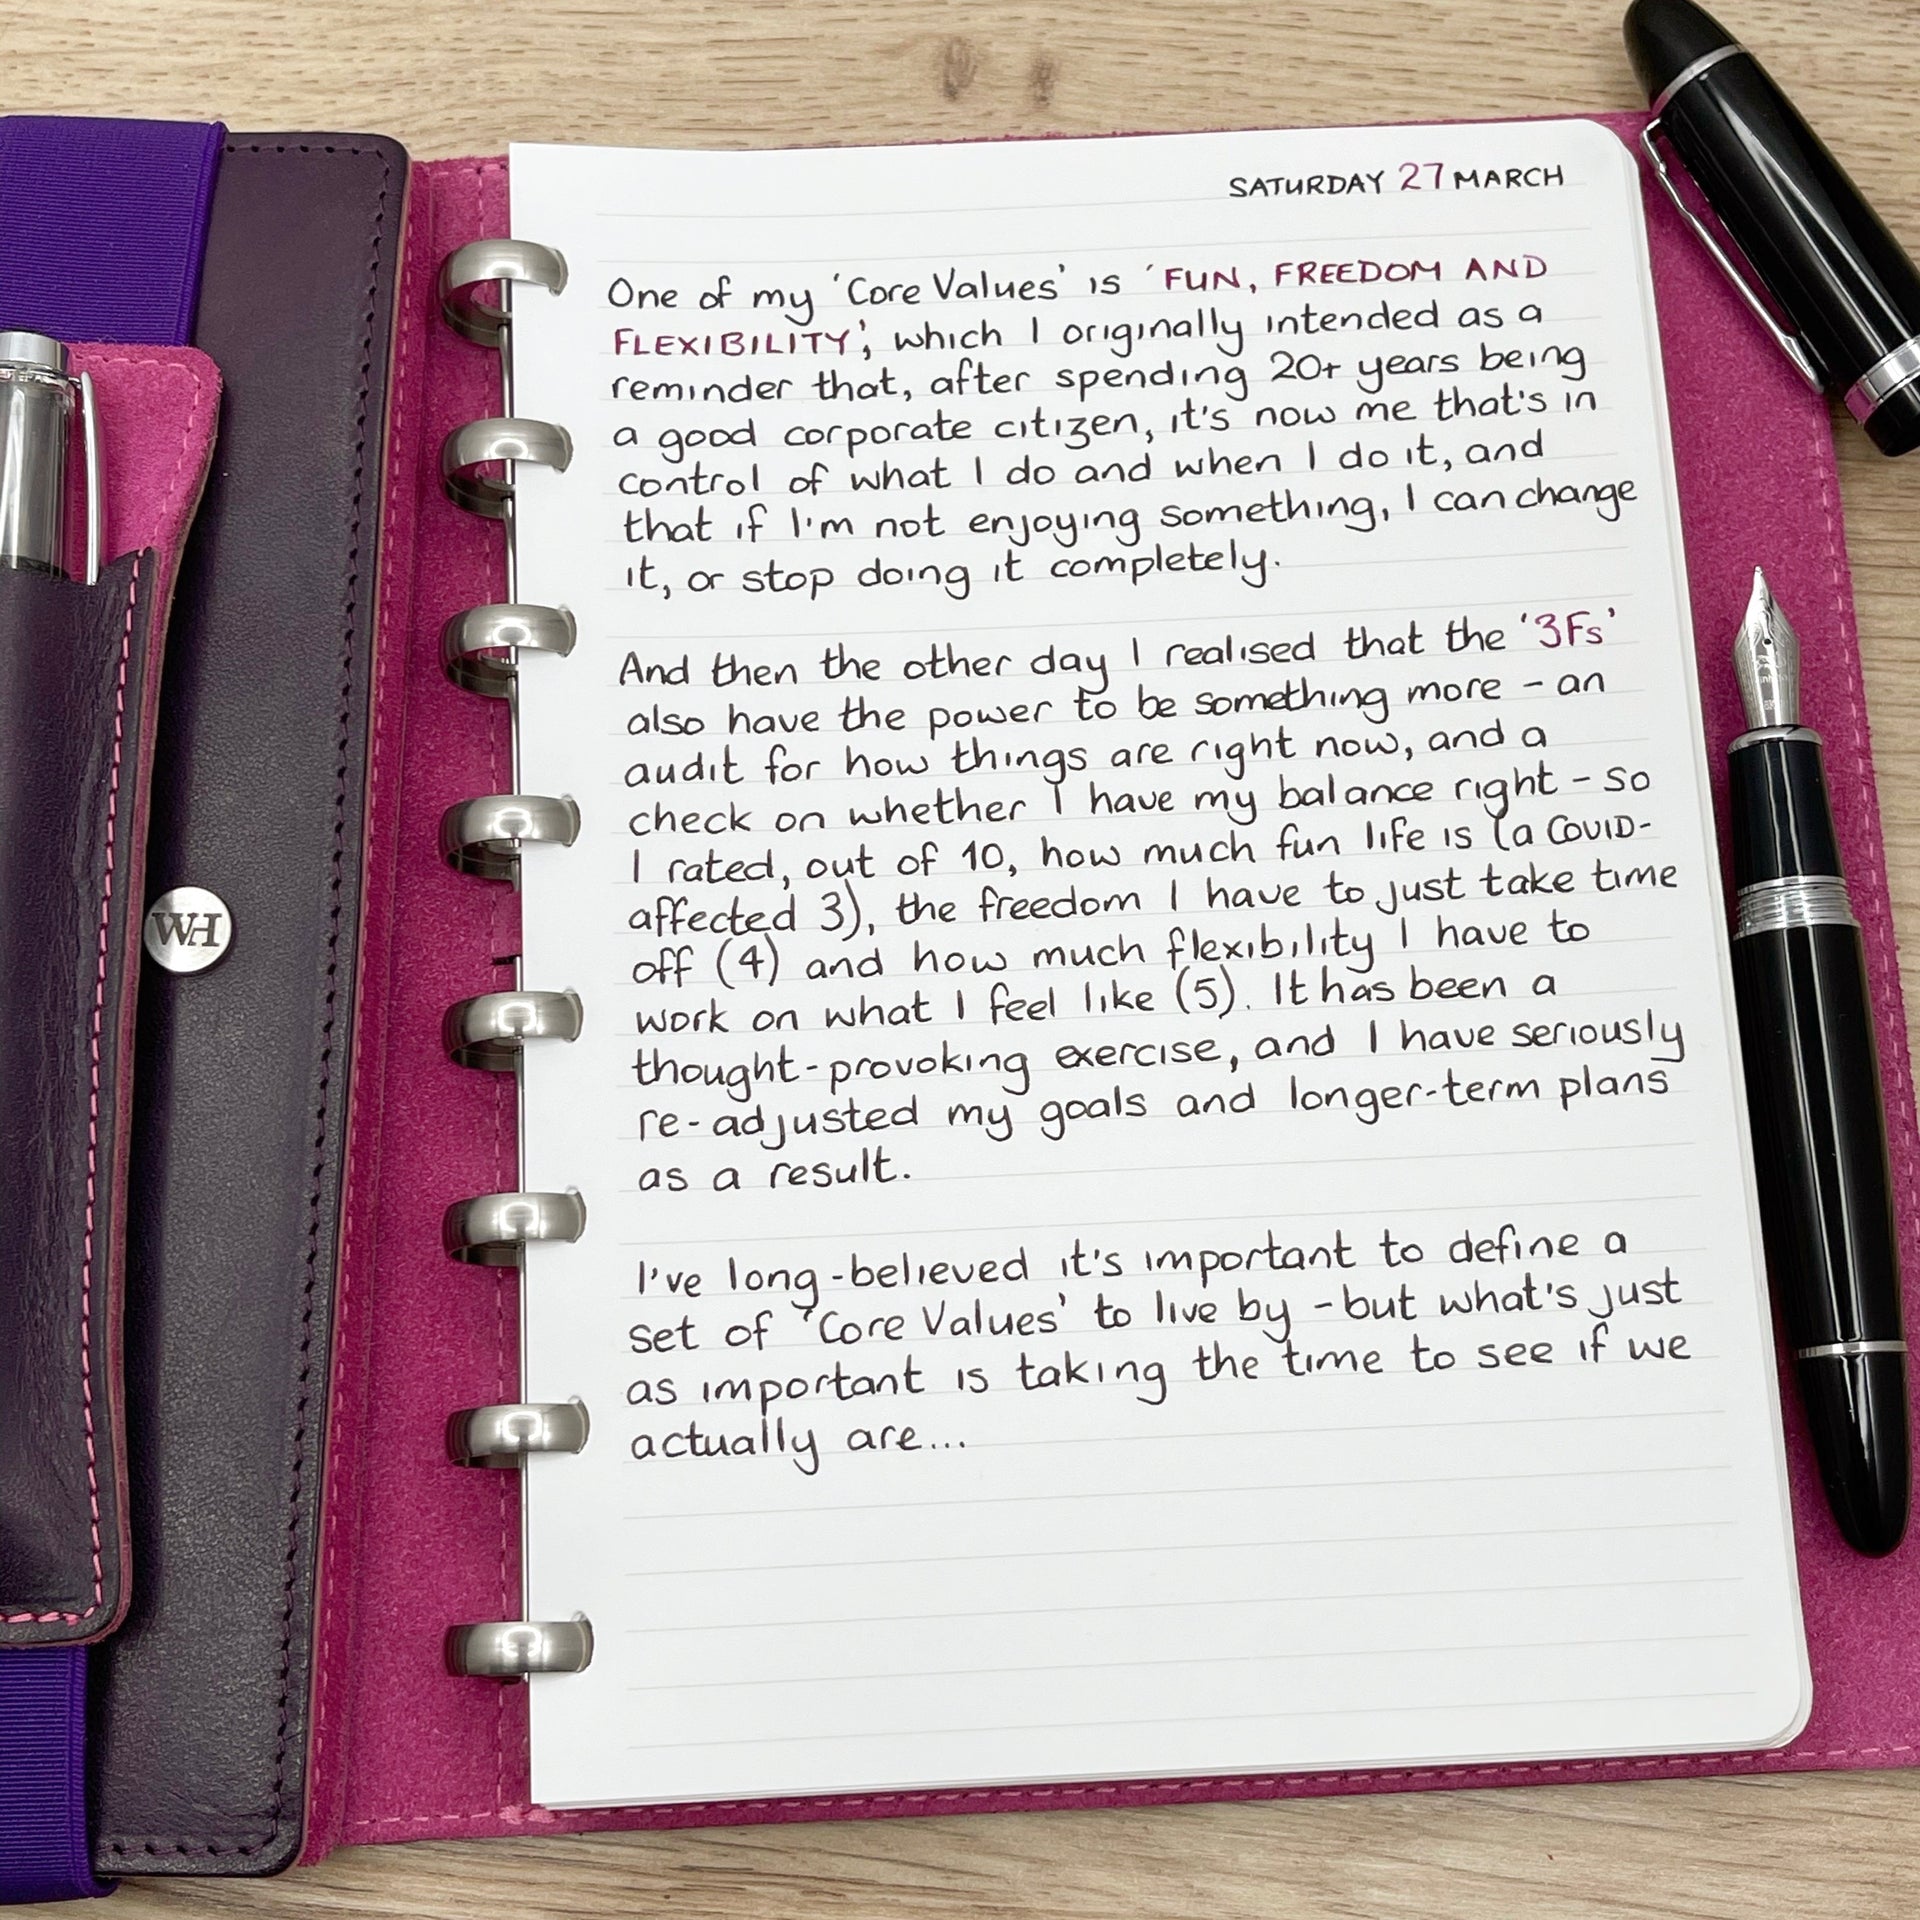 SATURDAY 27 MARCH
One of my 'Core Values' is 'FUN, FREEDOM AND
FLEXIBILITY', which I originally intended as a
reminder that, after spending 20+ years being
a good corporate citizen, it's now me that's in
control of what I do and when I do it, and
that if I'm not enjoying something, I can change
it, or stop doing it completely.
And then the other day I realised that the '3Fs'
also have the power to be something more - an
audit for how things are right now, and a
check on whether I have my balance right - so
I rated, out of 10, how much fun life is (a COVID-
affected 3), the freedom I have to just take time
off (4) and how much flexibility I have to
work on what I feel like (5). It has been a
thought-provoking exercise, and I have seriously
re-adjusted my goals and longer-term plans
as a result.
I've long-believed it's important to define a
set of 'Core Values' to live by - but what's just
as important is taking the time to see if we
actually are...
WH